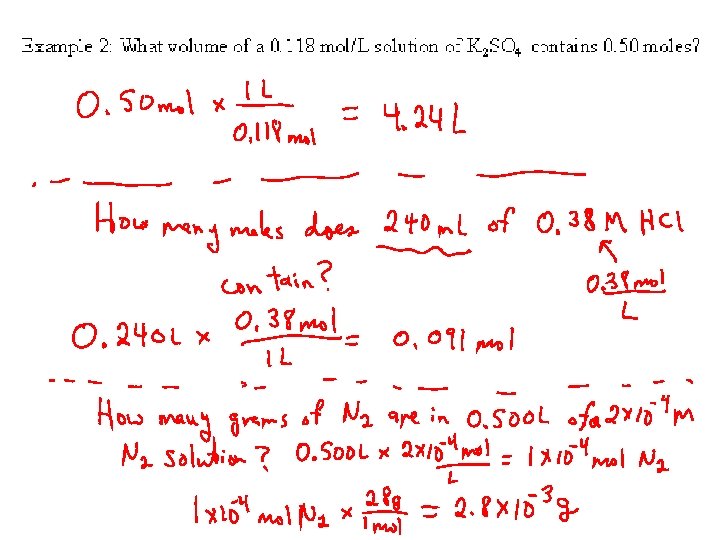 Example 2: What volume of a 0.118 mol/L solution of K₂SO₄ contains 0.50 moles?
0.50 mol × 1 L / 0.118 mol = 4.24 L
How many moles does 240 mL of 0.38 M HCl
contain?
0.38 mol / L
0.240 L × 0.38 mol / 1 L = 0.091 mol
How many grams of N₂ are in 0.500L of a 2×10⁻⁴ M
N₂ solution? 0.500L × 2×10⁻⁴ mol / L = 1×10⁻⁴ mol N₂
1×10⁻⁴ mol N₂ × 28g / 1 mol = 2.8×10⁻³ g